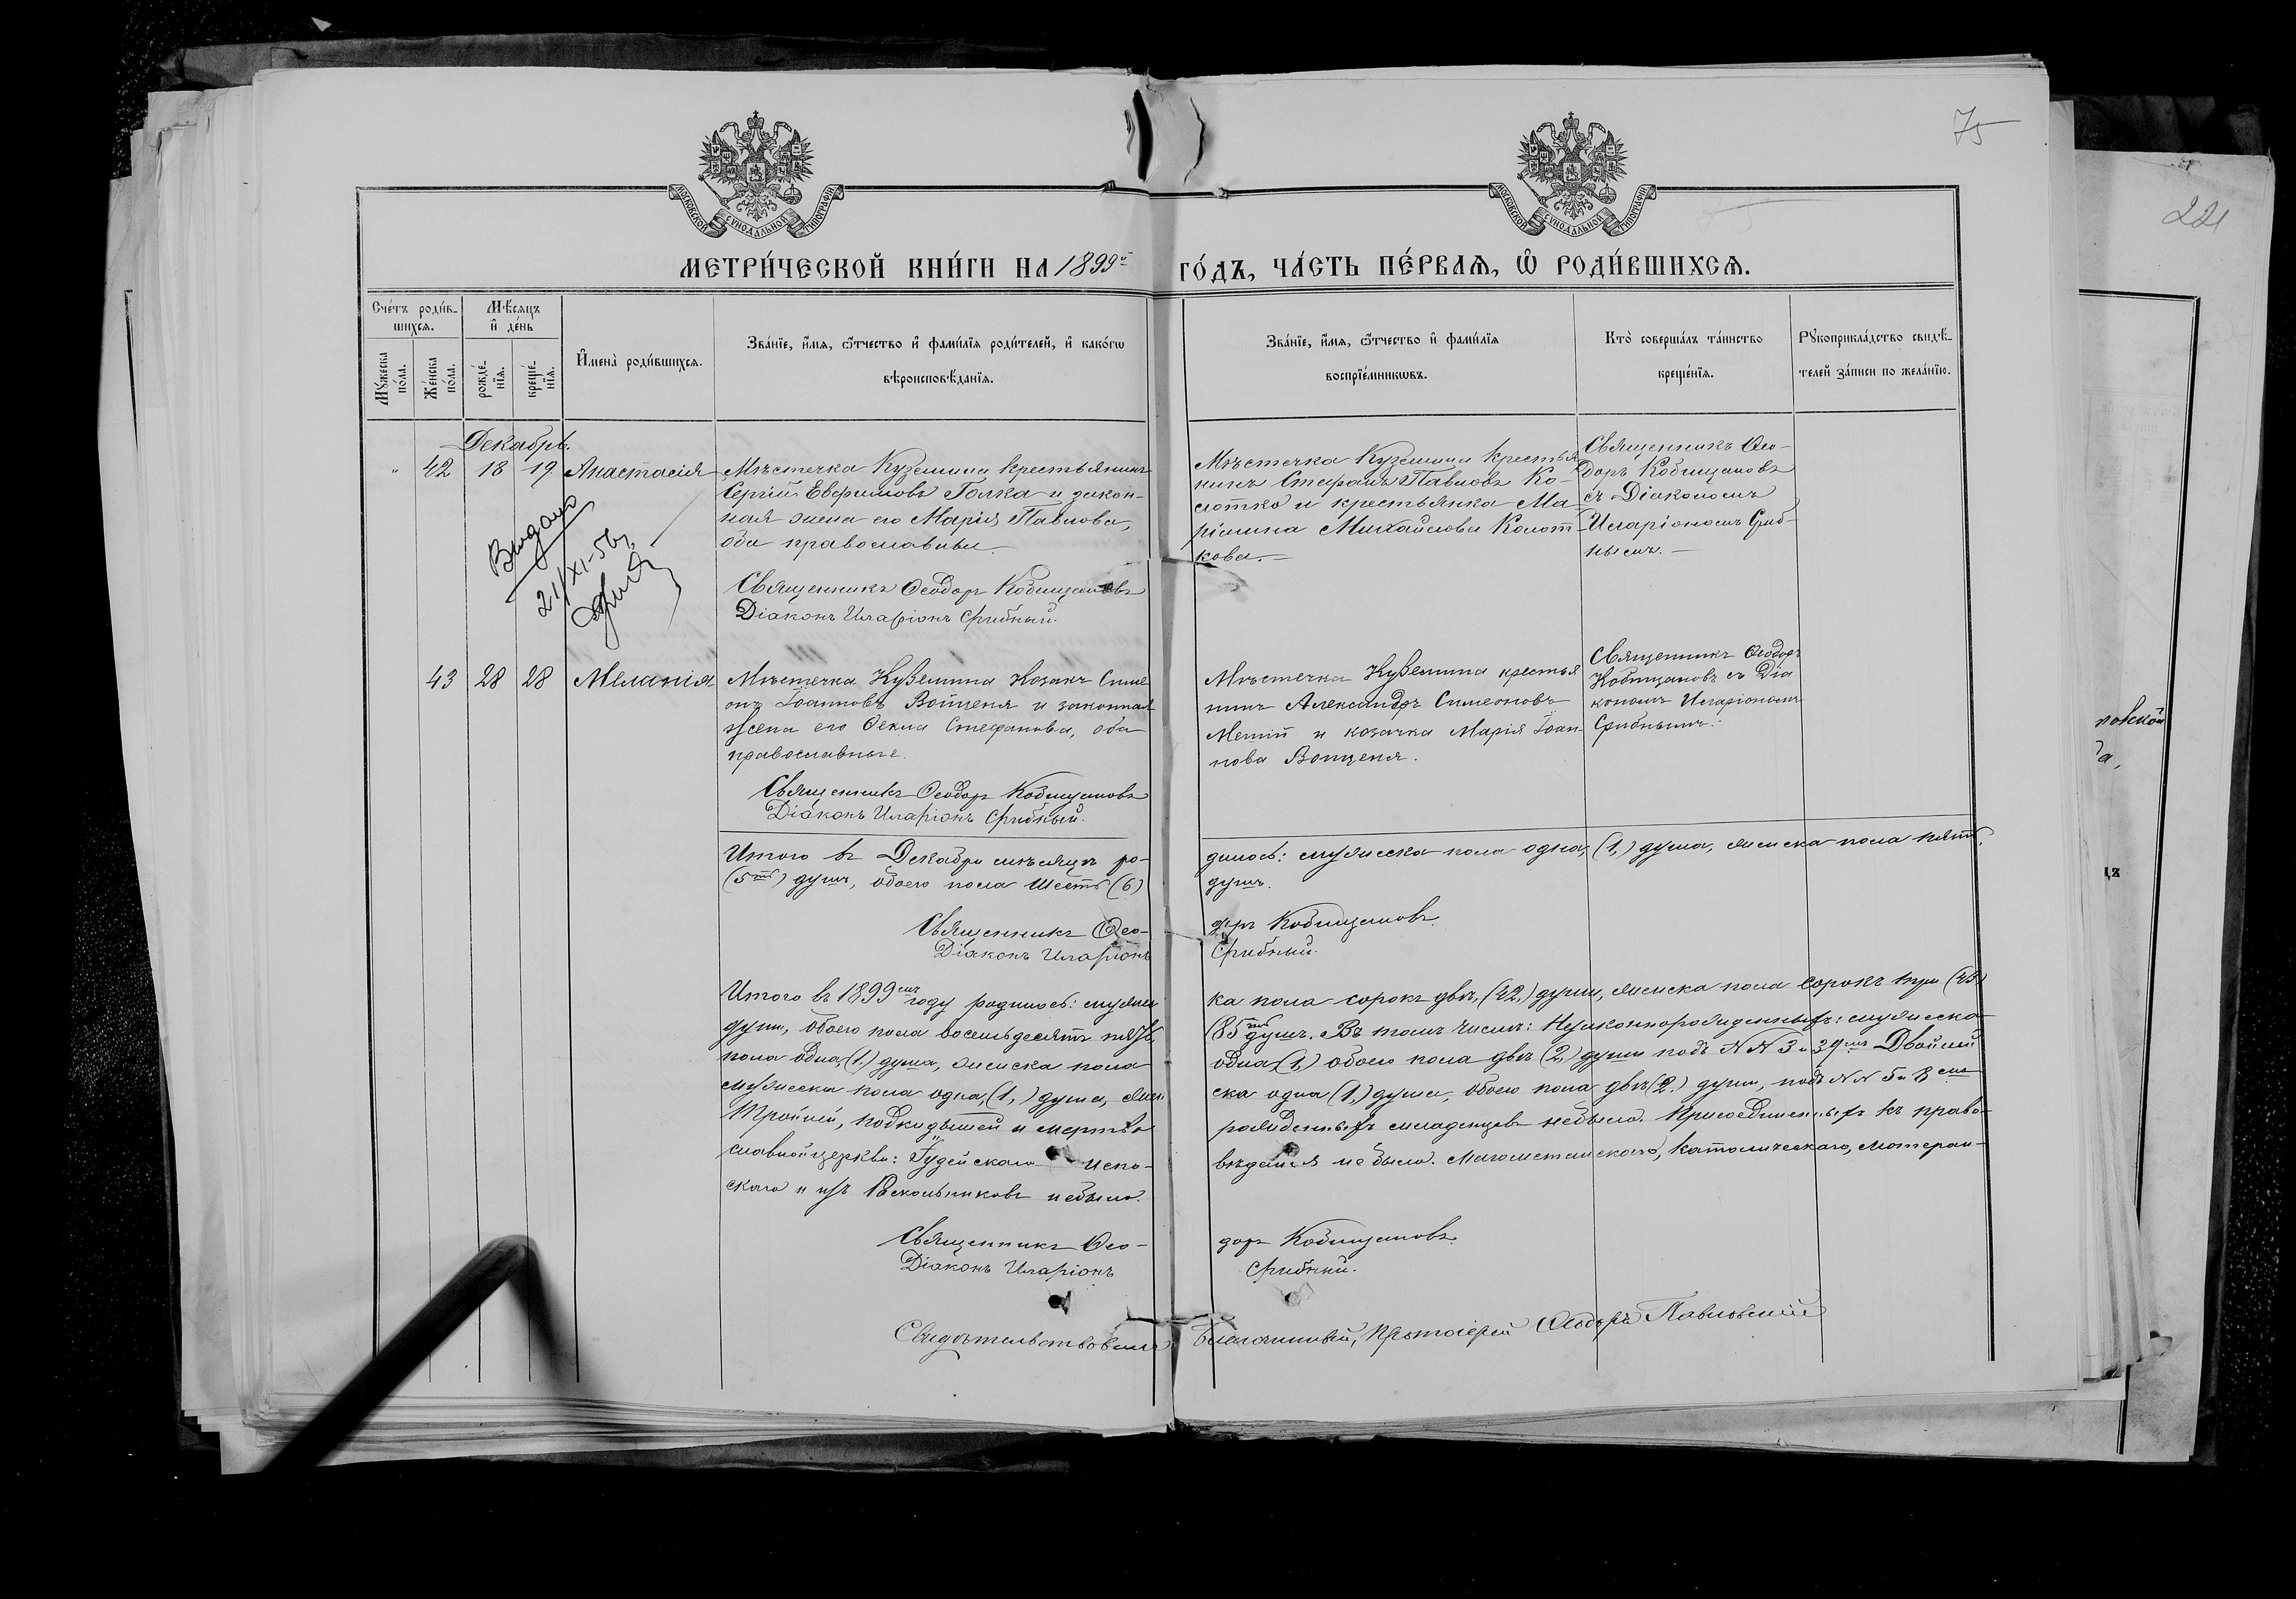 75
221
МОСКОВСКОЙ СѴНОДАЛЬНОЙ ТИПОГРАФІИ
МОСКОВСКОЙ СѴНОДАЛЬНОЙ ТИПОГРАФІИ
МЕТРИ́ЧЕСКОЙ КНИ́ГИ НА 1899й ГО́ДЪ, ЧА́СТЬ ПЕ́РВАЯ, Ѡ҆ РОДИ́ВШИХСѦ.
Сче́тъ роди́в-
шихся.
Мѣ́сяцъ
и҆ де́нь
Мꙋ́жеска
по́ла.
Же́нска
по́ла.
рожде́-
нїя.
креще́-
нїя.
И҆мена̀ роди́вшихся.
Зва́нїе, и҆́мя, ѻ҆́тчество и҆ фами́лїя роди́телей, и҆ како́гѡ
вѣроисповѣ́данїя.
Зва́нїе, и҆́мя, ѻ҆́тчество и҆ фами́лїя
воспрїе́мникѡвъ.
Кто̀ соверша́лъ та́инство
креще́нїя.
Рꙋкоприкла́дство свидѣ́-
телей за́писи по жела́нїю.
Декабрь.
" 42 18 19 Анастасія
Мѣстечка Куземина крестьянинъ
Сергій Евфимовъ Голка и закон-
ная жена его Марія Павлова,
оба православные
Священникъ Ѳеодоръ Кобищановъ
Діаконъ Иларіонъ Срибный.
Мѣстечка Куземина крестья
нинъ Стефанъ Павловъ Ко-
лотко и крестьянка Ма-
Михайлова Колот-
кова.
Священникъ Ѳео-
доръ Кобищановъ
съ Діакономъ
Иларіономъ Сриб-
нымъ.
Выдано
21/XI-56г.
43 28 28 Меланія
Мѣстечка Куземина Козакъ Симе
онъ Іоанновъ Вощеня и законная
жена его Ѳекла Стефанова, оба
православные.
Священникъ Ѳеодоръ Кобищановъ
Діаконъ Иларіонъ Срибный.
Мѣстечка Куземина крестья
нинъ Александръ Симеоновъ
и козачка Марія Іоан-
нова Вощеня.
Священникъ Ѳеодоръ
Кобищановъ съ Діа
кономъ Иларіономъ
Срибнымъ.
Итого въ Декабрѣ мѣсяцѣ ро-дилось: мужеска пола одна, (1,) душа, женска пола пять
(5ть) душъ, обоего пола шесть (6) душъ.
Священникъ Ѳео-доръ Кобищановъ.
Діаконъ Иларіонъ Срибный.
Итого въ 1899мъ году родилось: мужес ка пола сорокъ двѣ, (42,) души, женска пола сорокъ три (43)
души, обоего пола восемьдесятъ пять (85ть душъ. Въ томъ числѣ: Незаконнорожденныхъ: мужеска
пола одна, (1,) душа, женска пола одна (1,) обоего пола двѣ (2,) души подъ NN 3 и 39мъ Двойней
мужеска пола одна, (1,) душа, жен ска одна (1,) душа, обоего пола двѣ (2,) души, подъ NN 5 и 8мъ
Тройней, подкидышей и мертво рожденныхъ младенцевъ небыло. Присоединенныхъ къ право-
славной церкви: Іудейскаго испо-вѣданія небыло. Магометанскаго, католическаго, лютеран-
скаго и изъ Раскольниковъ небыло.
Священникъ Ѳео-доръ Кобищановъ.
Діаконъ Иларіонъ Срибный.
Свидѣтельствовалъ Благочинный, Протоіерей Ѳеодоръ Павловскій